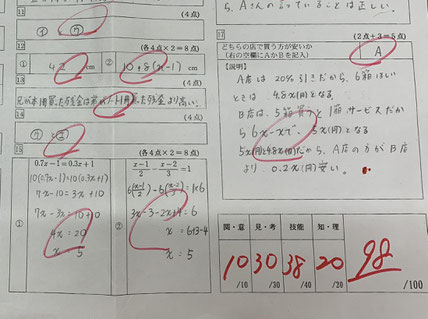 11
(4点)
①
12
(各4点×2=8点)
① 42 cm ② 10+8(x-1) cm
13
(4点)
14
(4点)
15
(各4点×2=8点)
①
0.7x-1=0.3x+1
10(0.7x-1)=10(0.3x+1)
7x-10=3x+10
7x-3x=10+10
4x=20
x 5
②
x-1/2 - x-2/3 =1
3x-3-2x+4=6
x = 6+3-4
x = 5
ら、Aさんの言っていることは正しい。
17
(2点+3=5点)
どちらの店で買う方が安いか
(右の空欄にAかBを記入)
A
【説明】
A店は20%引きだから、6箱ほしい
ときは、4.8x(円)となる
B店は、5箱買うと1箱サービスだか
ら 6x-xで 5x(円)となる
5x(円)と4.8x(円)だから、A店の方がB店
より 0.2x(円)安い。
関・意 見・考 技能 知・理
10 30 38 20 98
/10 /30 /40 /20 /100